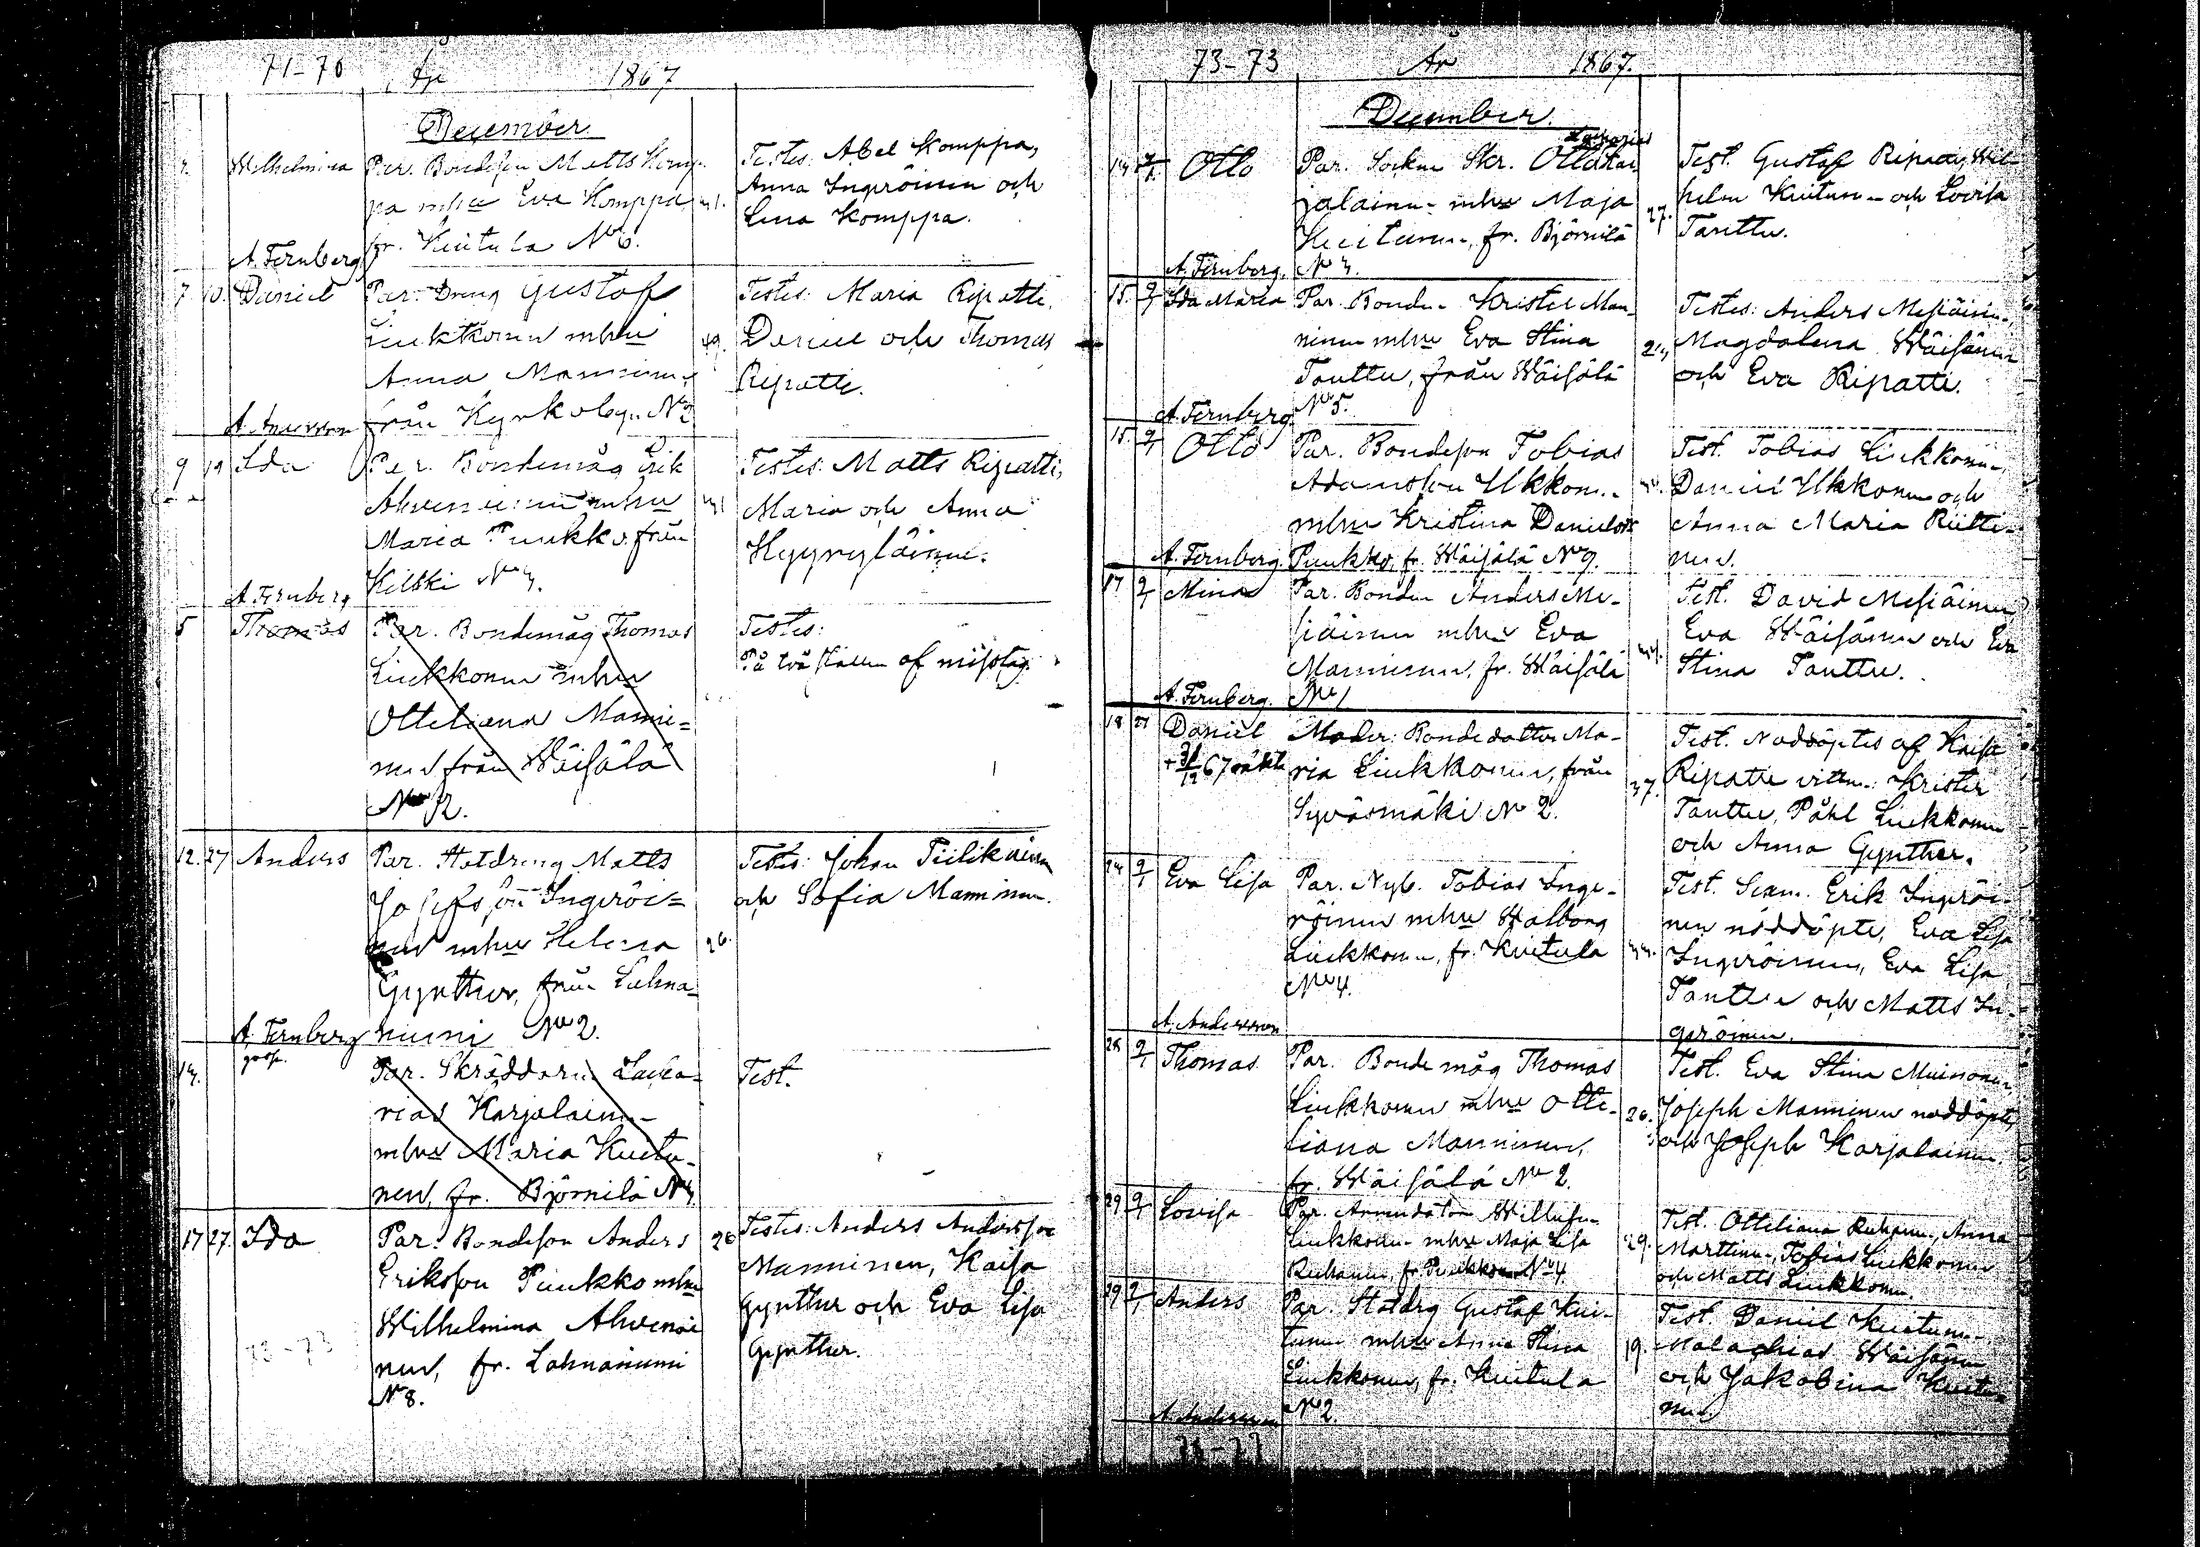 71-76 År 1867
December
Wilhelmina Par. Bondeson Matts Komp-
pa mhu Eva Komppa 31.
fr. Kuitula No 6.
A. Fernberg
Testes: Abel Komppa,
Anna Ingeröinen och
Lena Komppa.
7 10. Daniel Par. Dreng Gustaf
Liukkonen mhu
Anna Manninen,
från Kyrkobyn No 2
A. Andersson
Testes: Maria Ripatti,
Daniel och Thomas
Ripatti.
9 19 Ida Par. Bondemåg Erik
Ahvenainen mhu 31
Maria Puukko från
Kilkki No 3.
A. Fernberg
Testes: Matts Ripatti,
Maria och Anna
Hyyryläinen.
5 Thomas Par. Bondemåg Thomas
Liukkonen mhu
Otteliana Manni=
nen från Wäisälä
No 2.
Testes:
På två ställen af misstag.
12. 27 Anders Par. Statdreng Matts
Josefsson Ingeröi=
nen mhu Helena 26.
Gynther, från Lahna-
niemi No 2.
A. Fernberg
Testes: Johan Tiilikainen
och Sofia Manninen.
14. Par. Skräddaren Zacka-
rias Karjalainen
mhu Maria Kuitu-
nen, fr. Björnilä No 3.
Test.
17 27. Ida Par. Bondeson Anders 26
Eriksson Puukko mhu
Wilhelmina Ahvenai
nen, fr. Lahnaniemi
No 8.
Testes: Anders Andersson
Manninen, Kaisa
Gynther och Eva Lisa
Gynther.
73-73
73-73 År 1867.
December.
Zacharias
14 2/1 Otto Par. Socken Skr. Otto Kar
jalainen mhu Maja
Kuitunen, fr. Björnilä 27.
No 3.
A. Fernberg.
Test. Gustaf Ripatti, Wil-
helm Kuitunen och Lovisa
Tanttu.
15. 2/1 Ida Maria Par. Bonden Krister Man
ninen mhu Eva Stina
Tanttu, från Wäisälä
No 5.
A. Fernberg
Testes: Anders Mesiäinen,
Magdalena Wäisänen
och Eva Ripatti.
15. 2/1 Otto Par. Bondeson Tobias
Adamsson Ukkonen
mhu Kristina Danielsdr
Puukko, fr. Wäisälä No 9.
A. Fernberg.
Test. Tobias Liukkonen,
Daniel Ukkonen och
Anna Maria Riitti-
nen.
17 2/1 Mina Par. Bonden Anders Me-
siäinen mhu Eva
Manninen, fr. Wäisälä
No 1
A. Fernberg.
Test. David Mesiäinen,
Eva Wäisänen och Eva
Stina Tanttu.
18 21 Daniel Moder: Bondedottern Ma-
+ 31/12 67 oäkta ria Liukkonen, från
Syväsmäki No 2. 37.
Test. Nöddöptes af Kaisa
Ripatti vittn. Krister
Tanttu, Påhl Liukkonen
och Anna Gynther.
24 2/1 Eva Lisa Par. Nyb. Tobias Inge-
röinen mhu Walborg
Liukkonen, fr. Kuitula
No 4.
A. Andersson
Test. Erik Ingeröi-
nen nöddöpte, Eva Lisa
Ingeröinen, Eva Lisa
Tanttu och Matts In-
geröinen.
28 2/1 Thomas Par. Bondemåg Thomas
Liukkonen mhu Otte-
liana Manninen, 26.
fr. Wäisälä No 2.
Test. Eva Stina Muinonen,
Joseph Manninen nöddöpte,
och Joseph Karjalainen.
29 2/1 Lovisa Par. Arrendatorn Wilhelm
Liukkonen mhu Maja Lisa
29.
Test. Otteliana Anna
Marttinen, Tobias Liukkonen
och Matts Liukkonen.
29 2/1 Anders Par. Statdrg Gustaf Kui-
tunen mhu Anna Stina
Liukkonen, fr. Kuitula 19.
No 2.
A. Andersson
Test. Daniel Kuitunen
Malachias Wäisänen
och Jakobina Kuitu
nen.